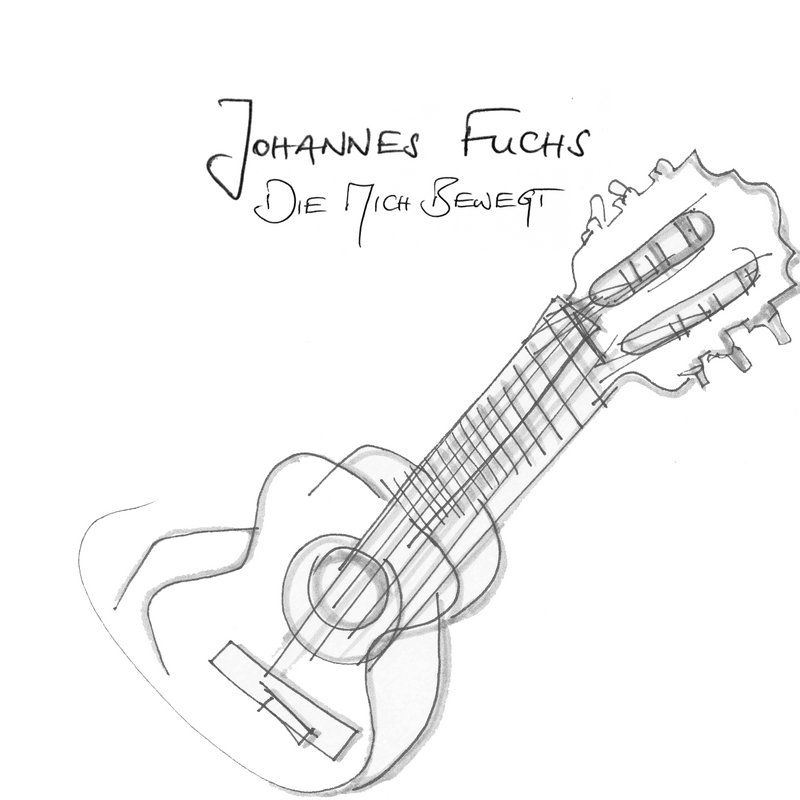 JOHANNES FUCHS
DIE MICH BEWEGT